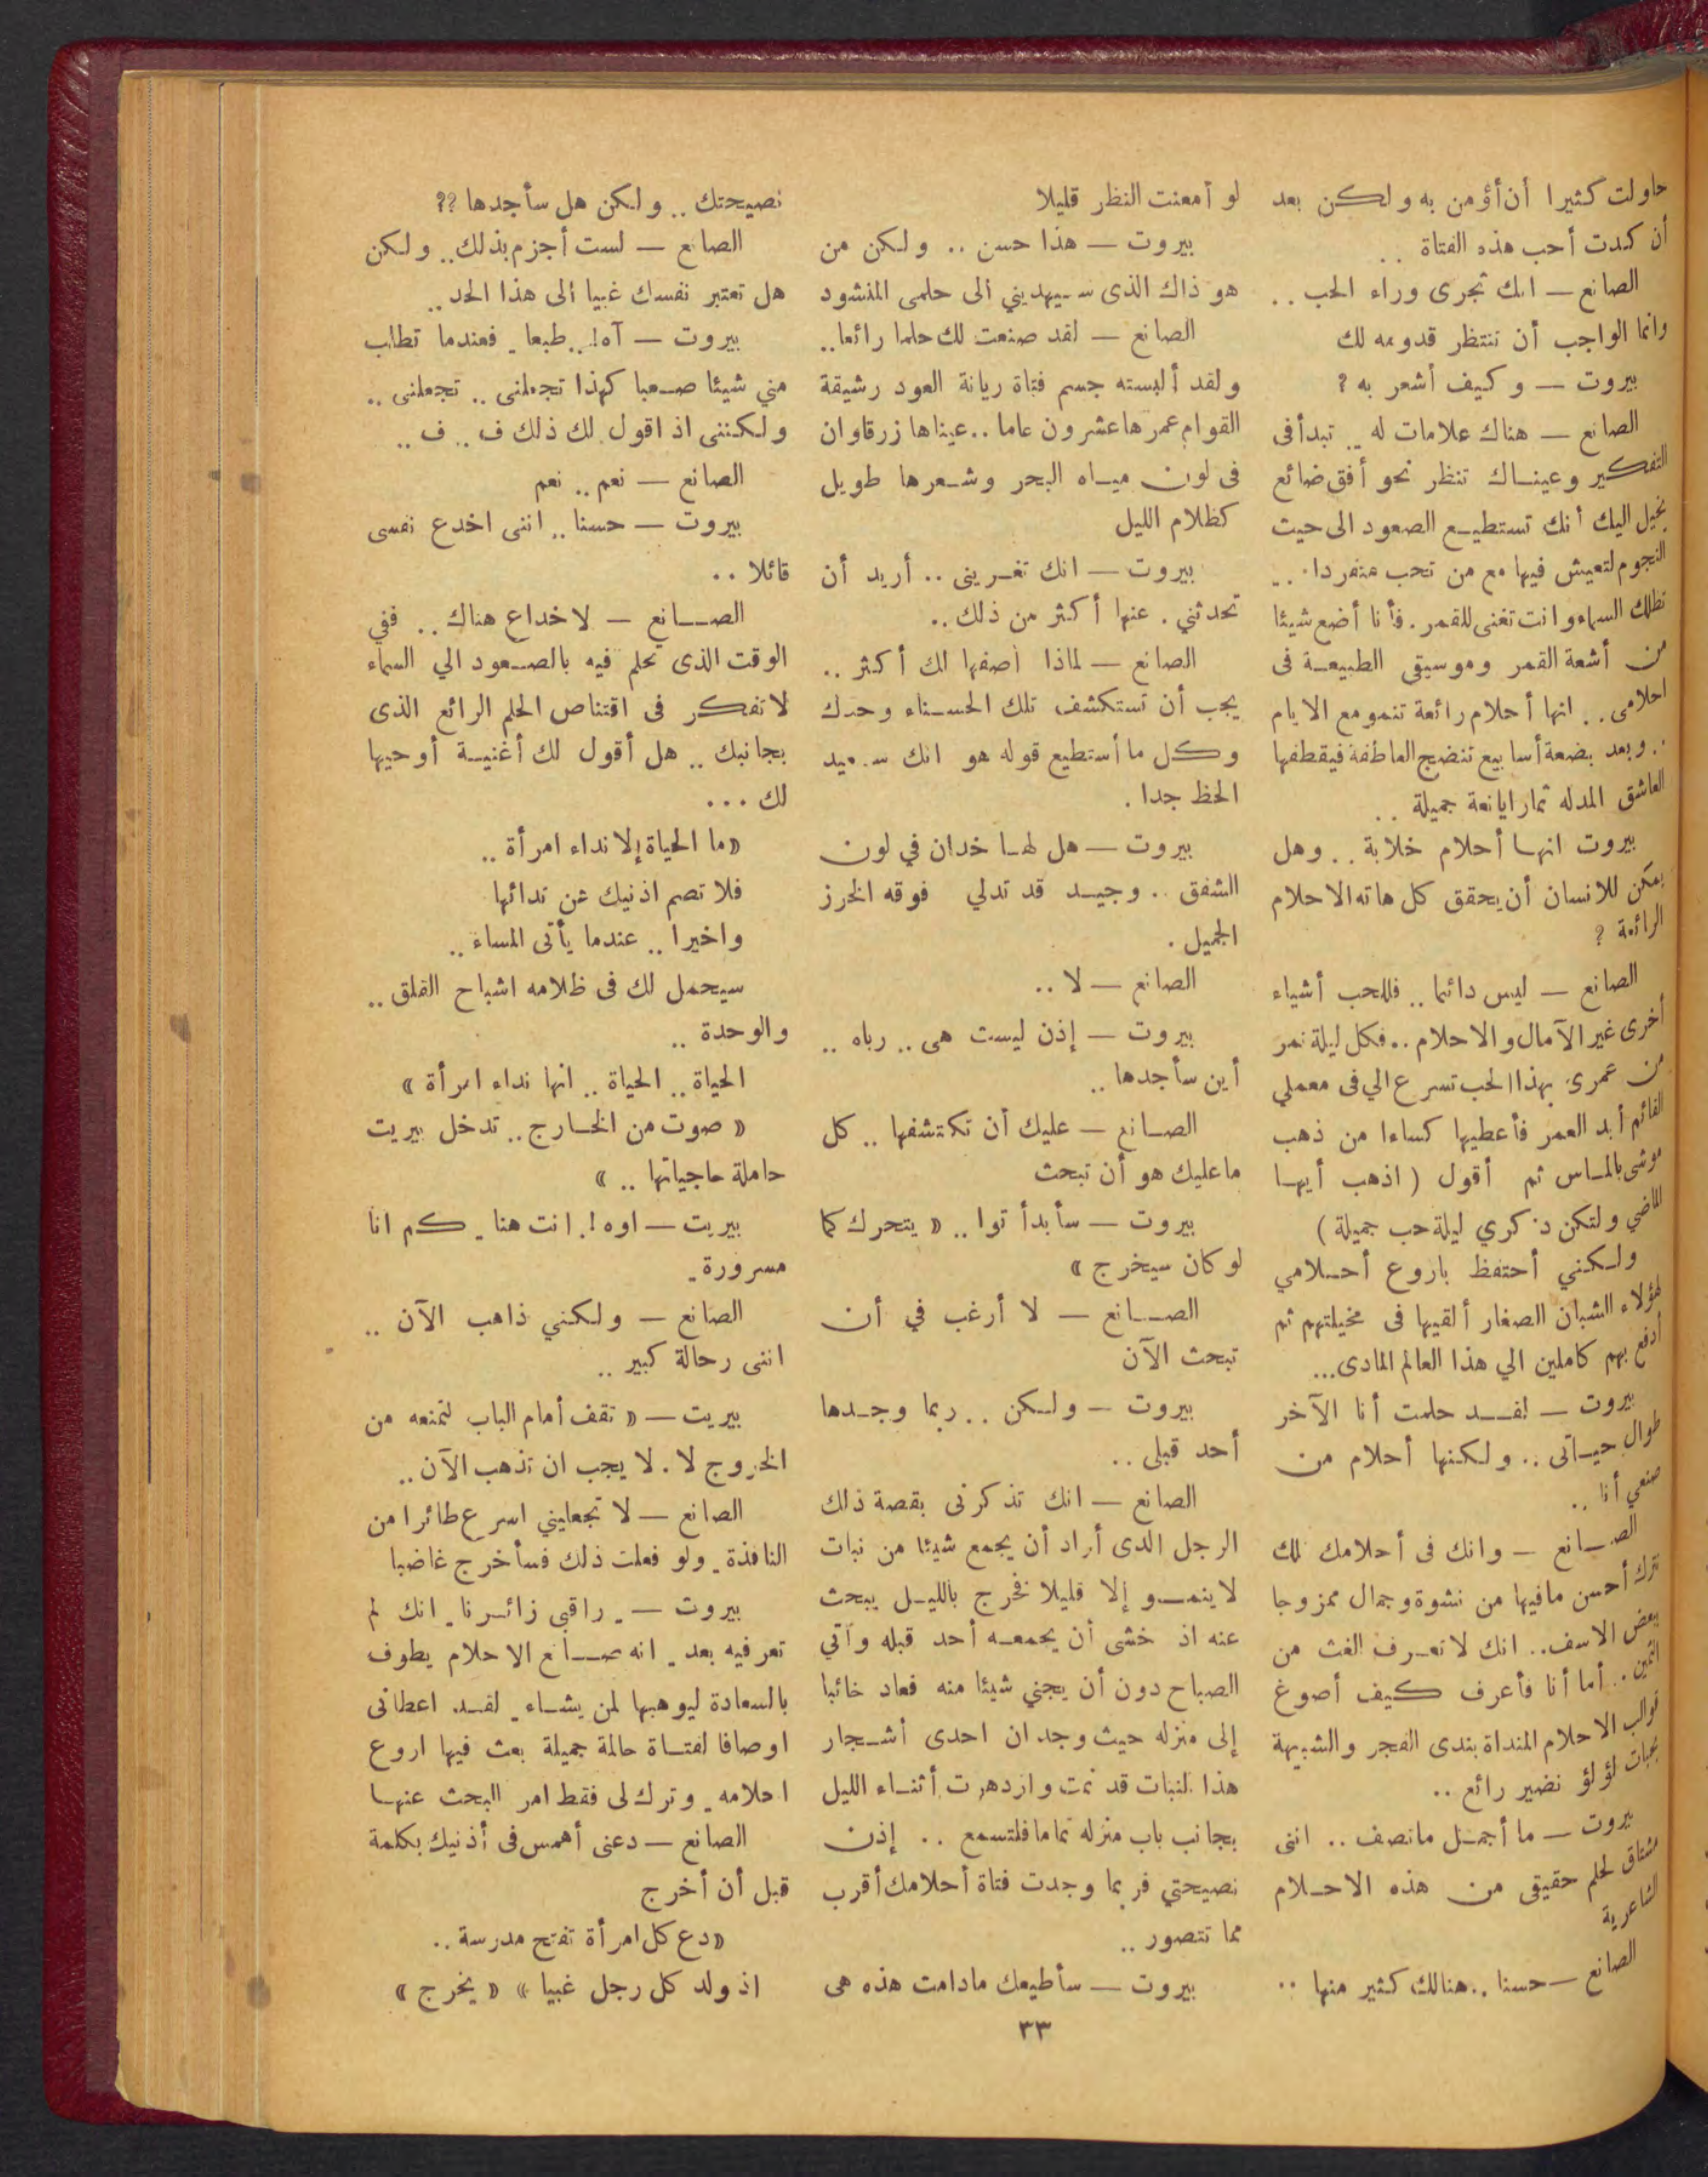 حاولت كثيرا أن أؤمن به ولكن بعد
أن كدت أحب هذه الفتاة . .
الصانع — انك تجرى وراء الحب . .
وانما الواجب أن ننتظر قدومه لك
بيروت — وكيف أشعر به ؟
الصانع — هناك علامات له .. تبدأ فى
التفكير وعينـاك تنظر نحو أفق ضائع
يخيل اليك أنك تستطيـع الصعود الى حيث
النجوم لتعيش فيها مع من تحب منفردا . .
تظلك السماء وانت تغنى للقمر . فأنا أضع شيئا
من أشعة القمر وموسيقى الطبيعـة فى
احلامى . . انها أحلام رائعة تنمو مع الايام
. . وبعد بضعة أسابيع تنضج العاطفة فيقطفها
العاشق المدله ثمارا يانعة جميلة . .
بيروت انهـا أحلام خلابة . . وهل
يمكن للانسان أن يحقق كل هاته الاحلام
الرائعة ؟
الصانع — ليس دائما .. فللحب أشياء
أخرى غير الآمال والاحلام .. فكل ليلة تمر
من عمرى بهذا الحب تسرع الي فى معملي
القائم أبد العمر فأعطيها كساءا من ذهب
موشى بالمـاس ثم أقول ( اذهب أيهـا
الماضي ولتكن ذكري ليلة حب جميلة )
ولـكنني أحتفظ باروع أحـلامي
لهؤلاء الشبان الصغار ألقيها فى مخيلتهم ثم
أدفع بهم كاملين الي هذا العالم المادى...
بيروت — لقــد حلمت أنا الآخر
طوال حيـاتى .. ولـكنها أحلام من
صنعي أنا ..
الصـانع — وانك فى أحلامك تلك
تترك أحسن مافيها من نشوة وجمال ممزوجا
ببعض الاسف.. انك لا تعـرف الغث من
الثمين . . أما أنا فأعرف كـيف أصوغ
قوالب الاحلام المنداة بندى الفجر والشبيهة
بحبات لؤلؤ نضير رائع ..
بيروت — ما أجمـل ماتصف .. اننى
مشتاق لحلم حقيقى من هذه الاحـلام
الشاعرية
الصانع — حسنا .. هنالك كثير منها ..
لو أمعنت النظر قليلا
بيروت — هذا حسن .. ولـكن من
هو ذاك الذى سـيهديني ألى حلمى المنشود
الصانع — لقد صنعت لك حلما رائعا..
ولقد ألبسته جسم فتاة ريانة العود رشيقة
القوام عمرها عشرون عاما .. عيناها زرقاوان
فى لون ميـاه البحر وشـعرها طويل
كظلام الليل
بيروت — انك تغـرينى .. أريد أن
تحدثني . عنها أكثر من ذلك ..
الصانع — لماذا أصفها لك أكثر ..
يجب أن تستكشف تلك الحسـناء وحدك
وكل ما أستطيع قوله هو انك سـعيد
الحظ جدا .
بيروت — هل لهـا خدان في لون
الشفق .. وجيـد قد تدلي فوقه الخرز
الجميل .
الصانع — لا ..
بيروت — إذن ليست هى .. رباه ..
أين سأجدها ..
الصـانع — عليك أن تكتشفها .. كل
ماعليك هو أن تبحث
بيروت — سأبدأ توا .. « يتحرك كما
لو كان سيخرج »
الصـانع — لا أرغب في أن
تبحث الآن
بيروت — ولـكن .. ربما وجـدها
أحد قبلى ..
الصانع — انك تذكرنى بقصة ذلك
الرجل الذى أراد أن يجمع شيئا من نبات
لا ينمــو إلا قليلا فخرج بالليـل يبحث
عنه اذ خشى أن يجمعـه أحد قبله وآتي
الصباح دون أن يجني شيئا منه فعاد خائبا
إلى منزله حيث وجد ان احدى أشـجار
هذا النبات قد نمت وازدهرت أثنـاء الليل
بجانب باب منزله تماما فلتسمع .. إذن
نصيحتي فربما وجدت فتاة أحلامك أقرب
مما تتصور ..
بيروت — سأطيعك مادامت هذه هى
نصيحتك .. ولـكن هل سأجدها ؟؟
الصانع — لست أجزم بذلك.. ولـكن
هل تعتبر نفسك غبيا ألى هذا الحد ..
بيروت — آه!.. طبعا . فعندما تطلب
مني شيئا صـعبا كهذا تجعلنى .. تجعلنى ..
ولـكننى اذ اقول لك ذلك ف .. ف ..
الصانع — نعم .. نعم
بيروت — حسنا .. اننى اخدع نفسى
قائلا ..
الصــانع — لاخداع هناك .. ففي
الوقت الذى تحلم فيه بالصـعود الي السماء
لا تفكر فى اقتناص الحلم الرائع الذى
بجانبك .. هل أقول لك أغنيـة أوحيها
لك ...
«ما الحياة إلا نداء امرأة ..
فلا تصم اذنيك عن ندائها
واخيرا .. عندما يأتى المساء ..
سيحمل لك فى ظلامه اشباح القلق ..
والوحدة ..
الحياة .. الحياة .. انها نداء امرأة »
« صوت من الخـارج .. تدخل بيريت
حاملة حاجياتها .. »
بيريت — اوه ! . انت هنا . كم انا
مسرورة .
الصانع — ولـكني ذاهب الآن ..
اننى رحالة كبير ..
بيريت — « تقف أمام الباب لتمنعه من
الخروج لا . لا يجب ان تذهب الآن ..
الصانع — لا تجعليني اسرع طائرا من
النافذة . ولو فعلت ذلك فسأخرج غاضبا
بيروت — . راقبي زائـرنا . انك لم
تعرفيه بعد . انه صـانع الاحلام يطوف
بالسعادة ليوهبها لمن يشـاء . لقـد اعطانى
اوصافا لفتـاة حالمة جميلة بعث فيها اروع
احلامه . وترك لى فقط امر البحث عنهـا
الصانع — دعنى أهمس فى أذنيك بكلمة
قبل أن أخرج
«دع كل امرأة تفتح مدرسة ..
اذ ولد كل رجل غبيا » « يخرج »
٣٣